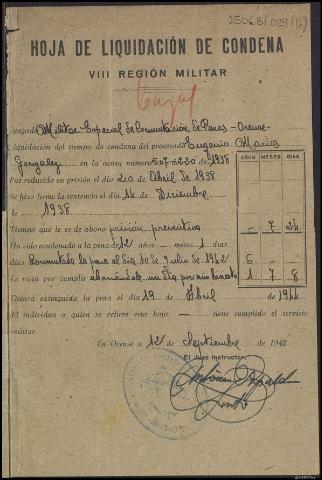 25068/029(16)
HOJA DE LIQUIDACIÓN DE CONDENA
VIII REGIÓN MILITAR
Juzgado Militar Especial de Conmutación de Penas - Orense
Liquidación del tiempo de condena del procesado Eugenio Macias
Gonzalez en la causa número 507-230 de 1938
AÑOS MESES DIAS
Fué reducido en prisión el día 20 de Abril de 1938
Se hizo firme la sentencia el día 14 Diciembre
de 1938
Tiempo que le es de abono prisión preventiva - 7 24
Ha sido condenado a la pena de 12 años - meses 1 dias
dias Conmutada la pena al día 10 de Julio de 1942 6 - -
Le resta por cumplir abonándole un día por año bisiesto 1 7 8
Dejará extinguida la pena el día 19 de Abril de 1944
El individuo a quien se refiere esta hoja - tiene cumplido el servicio
militar.
En Orense a 12 de Septiembre de 1942.
El Juez Instructor,